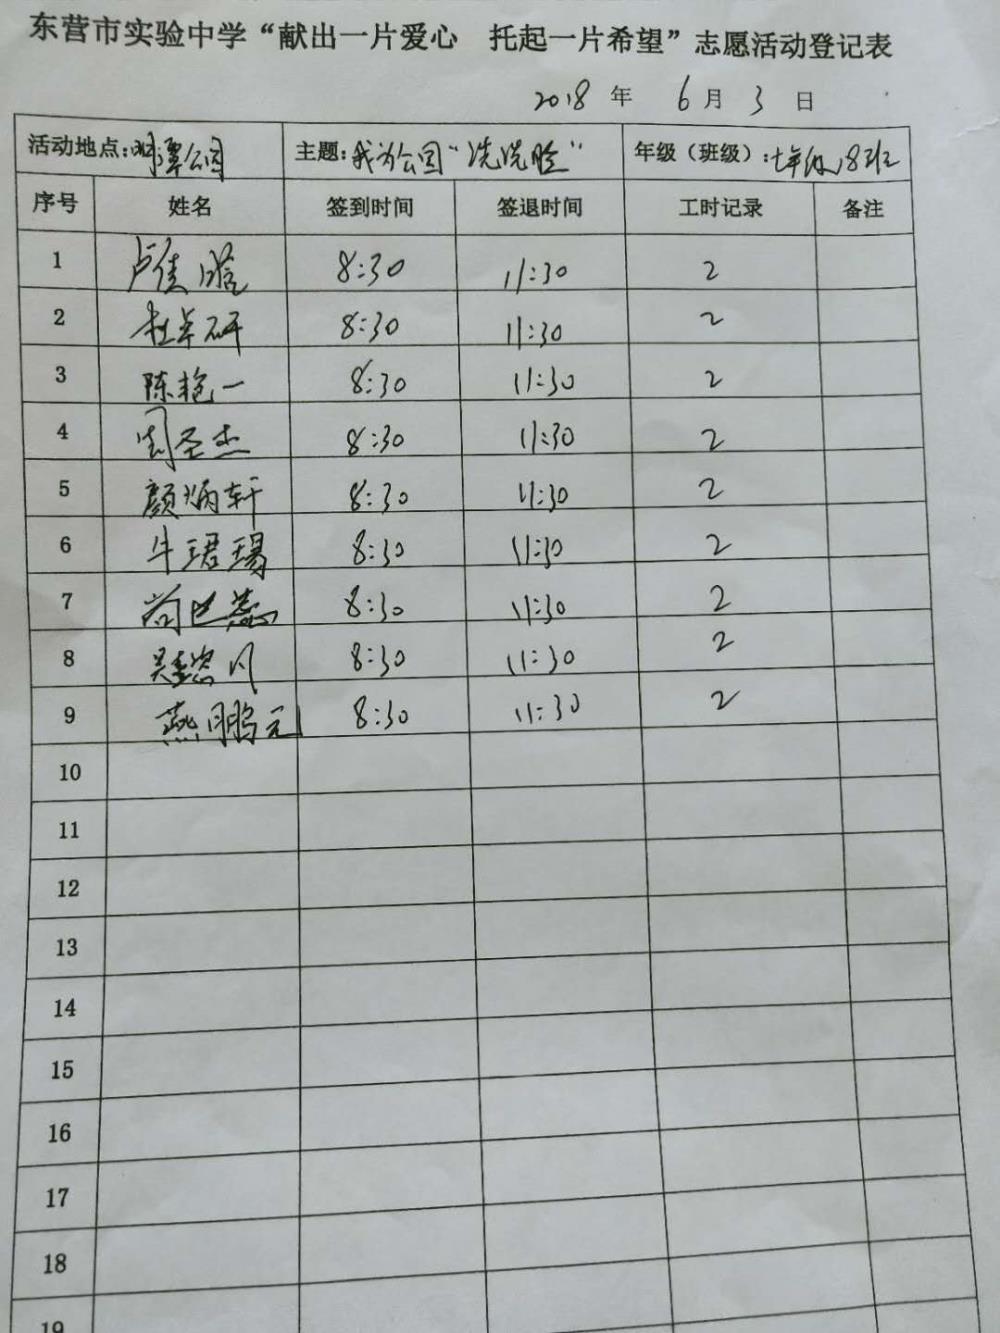 东营市实验中学“献出一片爱心 托起一片希望”志愿活动登记表
2018 年 6 月 3 日
活动地点: 明潭公园 主题: 我为公园“洗洗脸” 年级（班级）: 七年级18班
序号 姓名 签到时间 签退时间 工时记录 备注
1 卢佳晗 8:30 11:30 2
2 杜卓研 8:30 11:30 2
3 陈艳一 8:30 11:30 2
4 周圣杰 8:30 11:30 2
5 颜炳轩 8:30 11:30 2
6 牛珺瑒 8:30 11:30 2
7 尚 8:30 11:30 2
8 8:30 11:30 2
9 燕鹏元 8:30 11:30 2
10
11
12
13
14
15
16
17
18
19